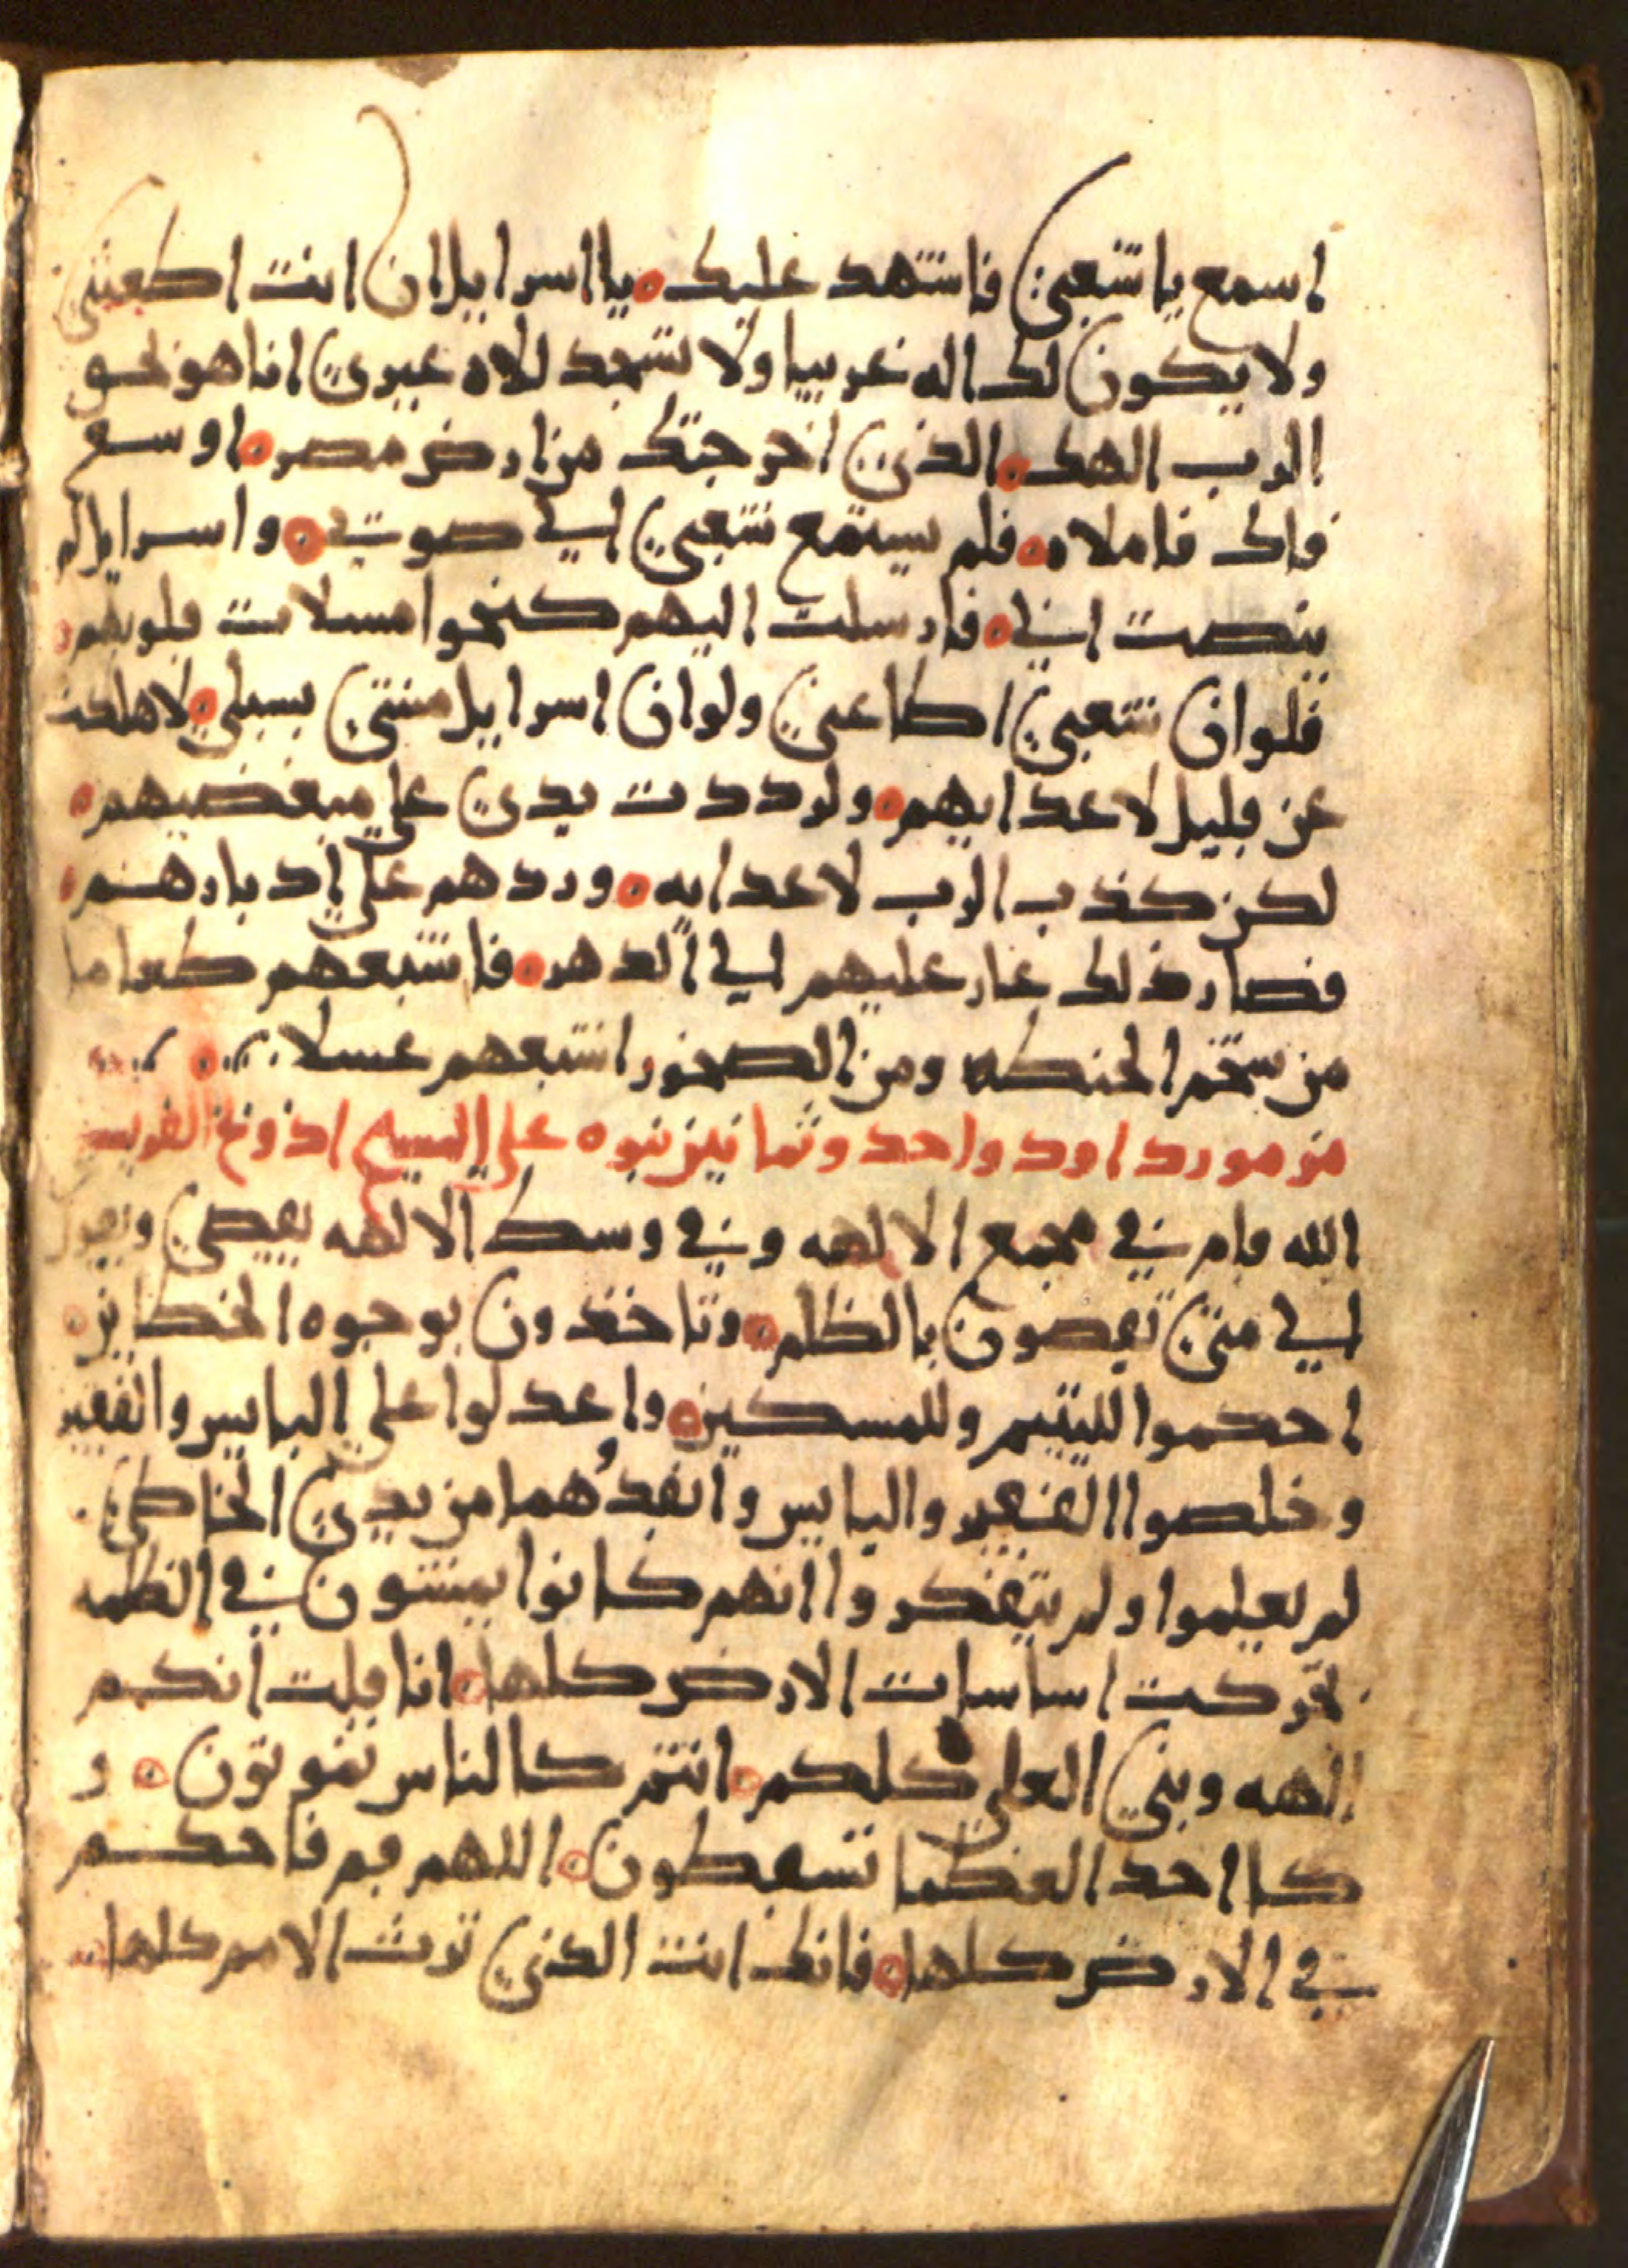 اسمع يا شعبي فاشهد عليك ه يا اسرايل ان انت اطعتني
ولا يكون لك اله غريبا ولا تسجد للاه غيري انا هو
الرب الهك ه الذي اخرجتك من ارض مصر ه اوسع
فاك فاملاه ه فلم يستمع شعبي الي صوتي ه واسرايل لم
ينصت الي ه فارسلت اليهم كنحوا مسلات قلوبهم ه
فلو ان شعبي اطاعني ولو ان اسرايل مشي بسبلي ه لاهلكت
عن قليل لاعدايهم ه ولرددت يدي علي مبغضيهم ه
لكن كذب الرب لاعدايه ه وردهم علي ادبارهم ه
فصار ذلك عار عليهم الي الدهر ه فاشبعهم طعاما
من شحم الحنطه ومن الصخور اشبعهم عسلا ه
مزمور داود واحد وثمانين نبوه علي المسيح اذ وبخ
الله قام في مجمع الالهه وفي وسط الالهه يقضي ويقول
الي متي تقضون بالظلم ه وتاخذون بوجوه الخطايين ه
احكموا لليتيم وللمسكين ه واعدلوا علي البايس والفقير
وخلصوا الفقير والبايس وانقذهما من يدي الخاطي
لم يعلموا ولم يتفكروا انهم كانوا يمشون في الظلمه
تحركت اساسات الارض كلها ه انا قلت انكم
الهه وبني العلي كلكم ه انتم كالناس تموتون ه و
كااحد العظما تسقطون ه اللهم قم فاحكم
في الارض كلها ه فانك انت الذي ترث الامم كلها